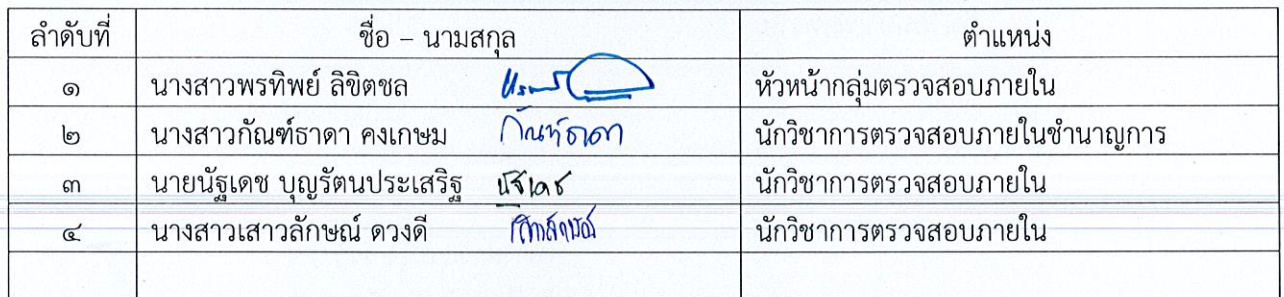 ลำดับที่ ชื่อ – นามสกุล ตำแหน่ง
๑ นางสาวพรทิพย์ ลิขิตชล หัวหน้ากลุ่มตรวจสอบภายใน
๒ นางสาวกัณฑ์ธาดา คงเกษม กัณฑ์ธาดา นักวิชาการตรวจสอบภายในชำนาญการ
๓ นายนัฐเดช บุญรัตนประเสริฐ นัฐเดช นักวิชาการตรวจสอบภายใน
๔ นางสาวเสาวลักษณ์ ดวงดี เสาวลักษณ์ นักวิชาการตรวจสอบภายใน